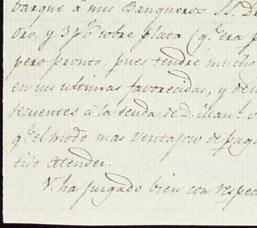 barque à mis Banqueros M. D
Oro, y 3 p% sobre plata (q.e era p
pero pronto pues tendré mucho
en sus ultimas favorecidas, y de
secuentes à la deuda de D. Man.l
q.e el modo mas ventajoso de pag
tido atender.
V. ha juzgado bien con respec